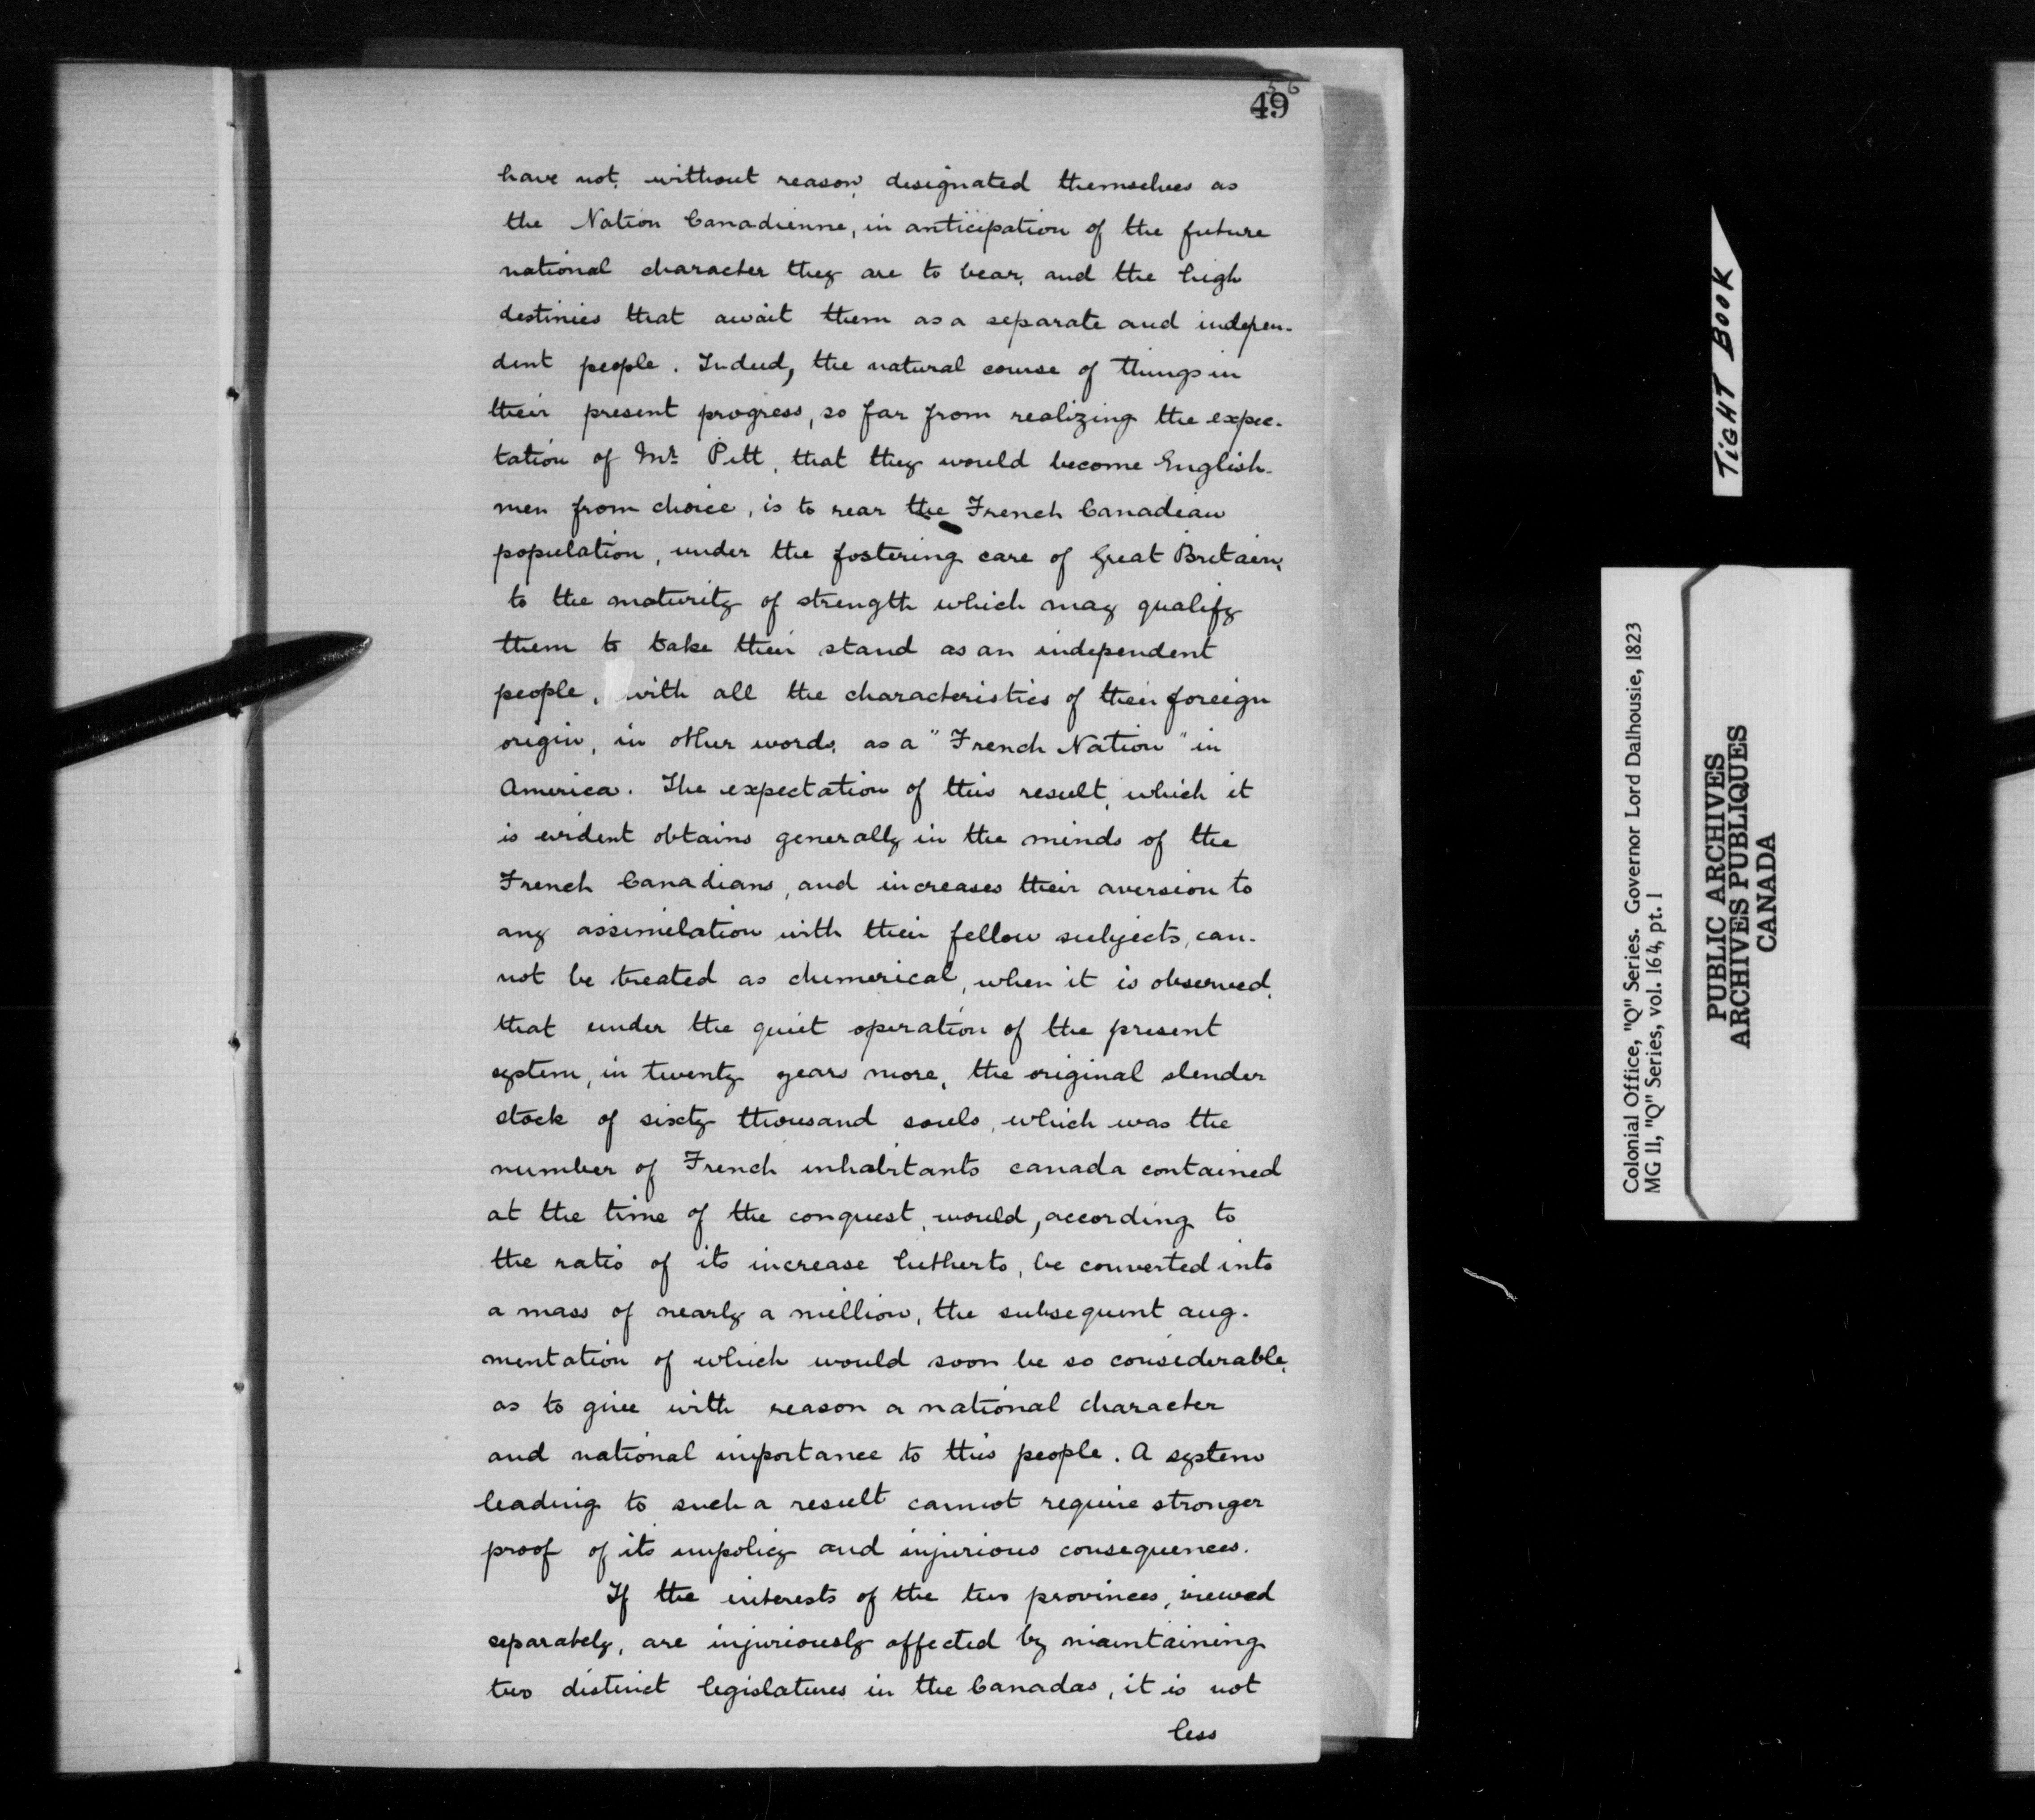 56
49
have not, without reason, designated themselves as
the Nation Canadienne, in anticipation of the future
national character they are to bear, and the high
destinies that await them as a separate and indepen-
dent people. Indeed, the natural course of things in
their present progress, so far from realizing the expec-
tation of Mr. Pitt, that they would become English-
men from choice, is to rear the French Canadian
population, under the fostering care of Great Britain,
to the maturity of strength which may qualify
them to take their stand as an independent
people, with all the characteristics of their foreign
origin, in other words, as a "French Nation" in
America. The expectation of this result, which it
is evident obtains generally in the minds of the
French Canadians, and increases their aversion to
any assimilation with their fellow subjects, can-
not be treated as chimerical, when it is observed,
that under the quiet operation of the present
system, in twenty years more, the original slender
stock of sixty thousand souls, which was the
number of French inhabitants canada contained
at the time of the conquest, would, according to
the ratio of its increase hitherto, be converted into
a mass of nearly a million, the subsequent aug-
mentation of which would soon be so considerable,
as to give with reason a national character
and national importance to this people. A system
leading to such a result cannot require stronger
proof of its impolicy and injurious consequences.
If the interests of the two provinces, viewed
separately, are injuriously affected by maintaining
two distinct legislatures in the Canadas, it is not
less
TIGHT BOOK
Colonial Office, "Q" Series. Governor Lord Dalhousie, 1823
MG 11, "Q" Series, vol. 164, pt. 1
PUBLIC ARCHIVES
ARCHIVES PUBLIQUES
CANADA